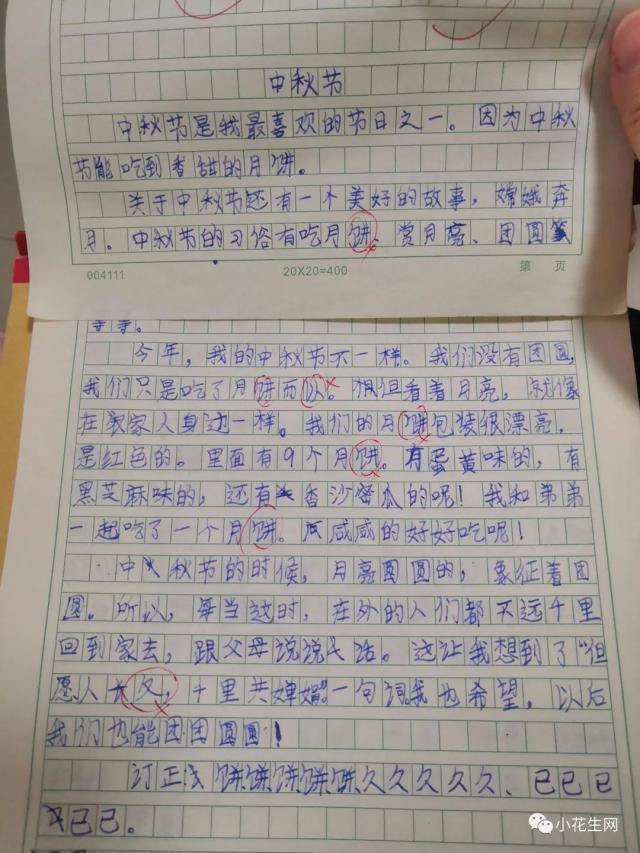 中秋节
中秋节是我最喜欢的节日之一。因为中秋
节能吃到香甜的月饼。
关于中秋节还有一个美好的故事，嫦娥奔
月。中秋节的习俗有吃月饼、赏月亮、团圆
004111 20X20=400 第 页
等等。
今年，我的中秋节不一样。我们没有团圆，
我们只是吃了月饼而以。但看着月亮，就像
在家人身边一样。我们的月饼包装很漂亮，
是红色的。里面有9个月饼。有蛋黄味的，有
黑芝麻味的，还有香沙蜜瓜的呢！我和弟弟
一起吃了一个月饼。咸咸的好好吃呢！
中秋节的时候，月亮圆圆的，象征着团
圆。所以，每当这时，在外的人们都不远千里
回到家去，跟父母说说话。这让我想到了“但
愿人长夂，千里共婵娟”一句词。我也希望，以后
我们也能团团圆圆！
订正：饼饼饼饼饼久久久久久、已已已
已已。
小花生网